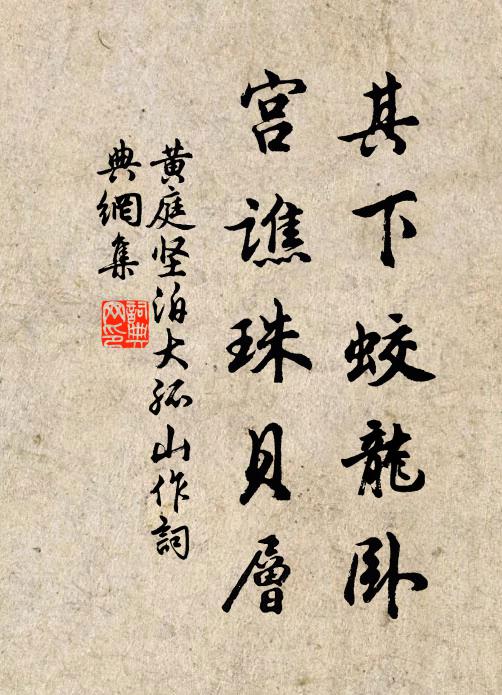 其下蛟龍卧
宫譙珠貝層
黄庭坚泊大孤山作詞
典網集
詞典网印